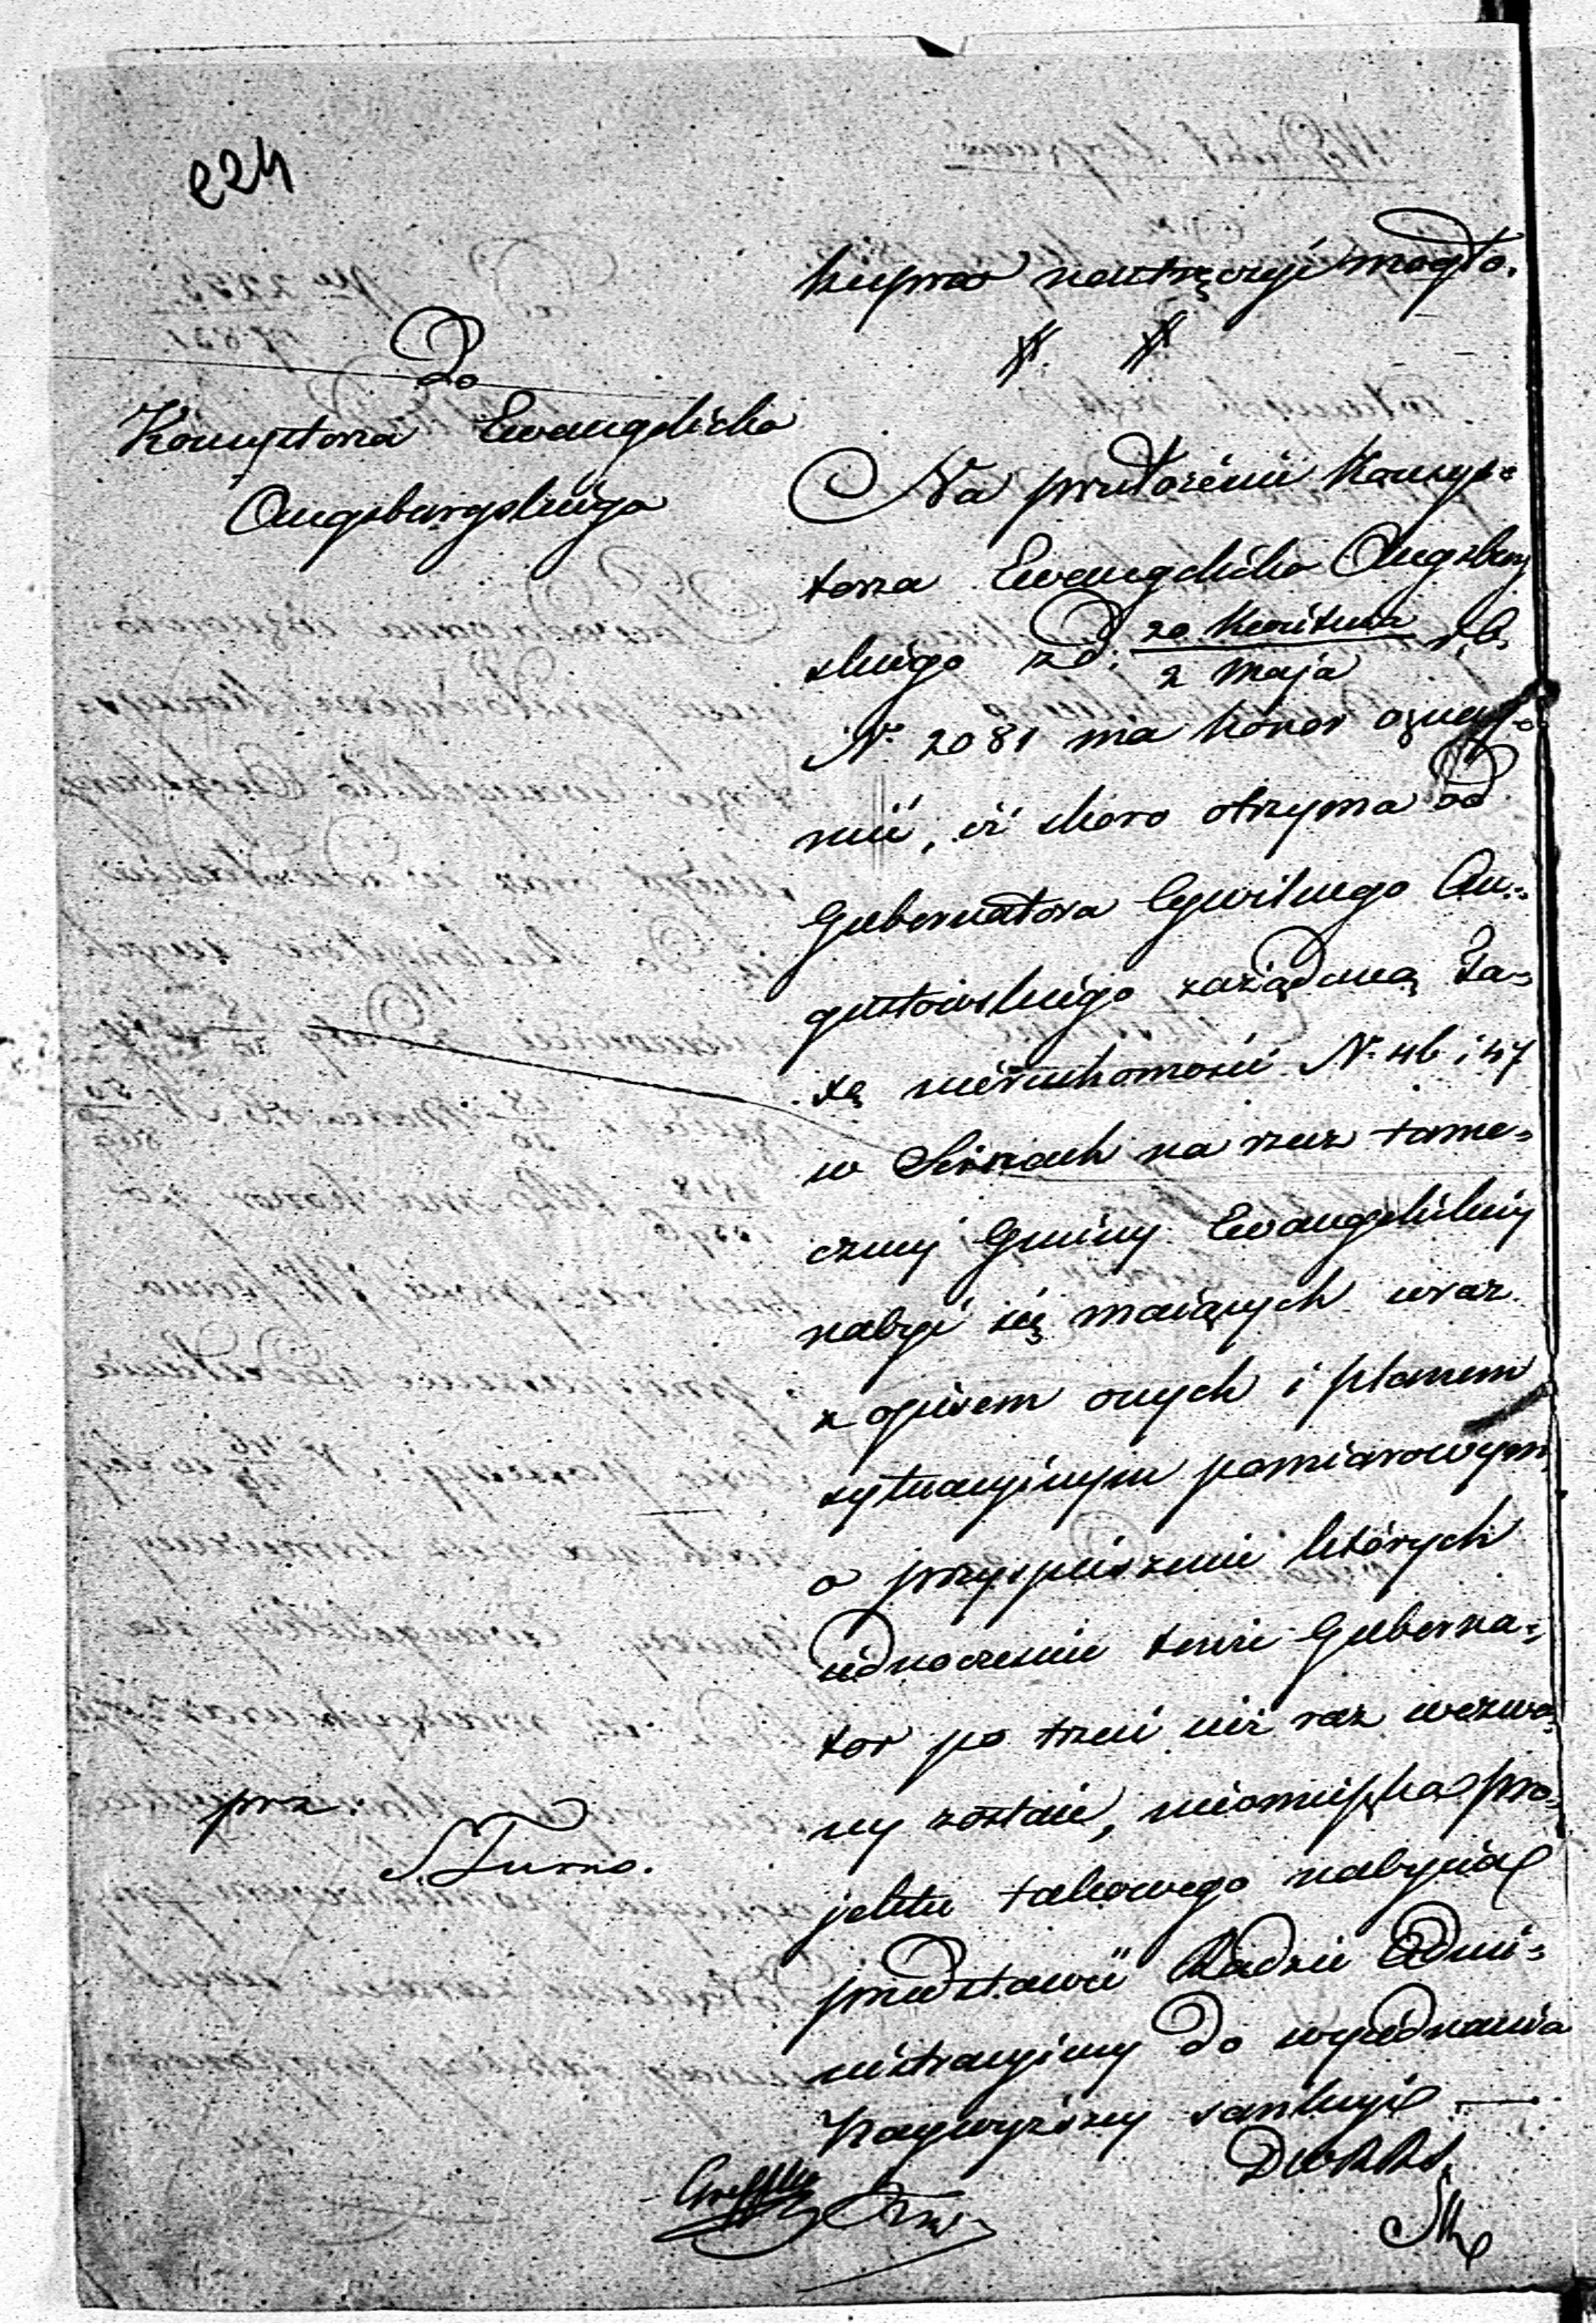 e24
kupno nastręczyć mogło.
Do
Konsystorza Ewangelicko
Augsburgskiego
Na przełożenie Konsys=
torza Ewangelicko Augsburg
skiego z d: 20 Kwietnia / 2 Maja r. b.
N. 2081 ma honor oznay=
mić, iż skoro otrzyma od
Gubernatora Cywilnego Au=
gustowskiego zażądaną Ta=
xę nieruchomości N. 46 i 47
w Seinach na rzecz tame=
czney Gminy Ewangelickiey
nabyć się maiących wraz
z opisem onych i planem
sytuacyinym pomiarowym
o przyspieszenie których
iednocześnie tenże Guberna=
tor po trzeci iuż raz wezwa=
ny zostaie, nieomieszka pro=
jektu takowego nabycia
przedstawić Radzie Admi=
nistracyiney do wyiednania
Naywyższey sankcyi —
prz:
S. Turno.